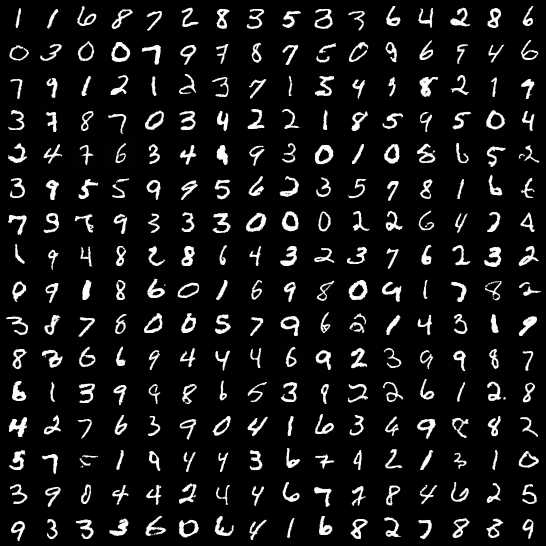 1 1 6 8 7 2 8 3 5 3 3 6 4 2 8 6
0 3 0 0 7 9 7 8 7 5 0 9 6 9 4 6
7 9 1 2 1 2 3 7 1 5 4 3 8 2 1 9
3 7 8 7 0 3 4 2 2 1 8 5 9 5 0 4
2 4 7 6 3 4 9 3 0 1 0 8 6 5 2
3 9 5 5 9 9 5 6 2 3 5 7 8 1 6
7 9 9 3 3 3 0 0 0 2 2 6 4 2 4
1 9 4 8 2 8 6 4 3 2 3 7 6 2 3 2
9 1 8 6 0 1 6 9 8 0 9 1 7 8 2
3 8 7 6 0 0 5 7 9 6 2 1 4 3 1 9
8 2 6 6 9 4 4 4 6 9 2 3 9 9 8 7
6 1 3 9 9 8 6 5 3 9 2 2 6 1 2 8
4 2 7 6 3 9 0 4 1 6 3 4 9 8 8 2
5 7 5 1 9 4 4 3 6 7 9 2 1 3 1 0
3 9 0 4 4 2 4 4 6 7 7 8 4 6 2 5
9 3 3 3 6 0 6 4 1 6 8 2 7 8 8 9